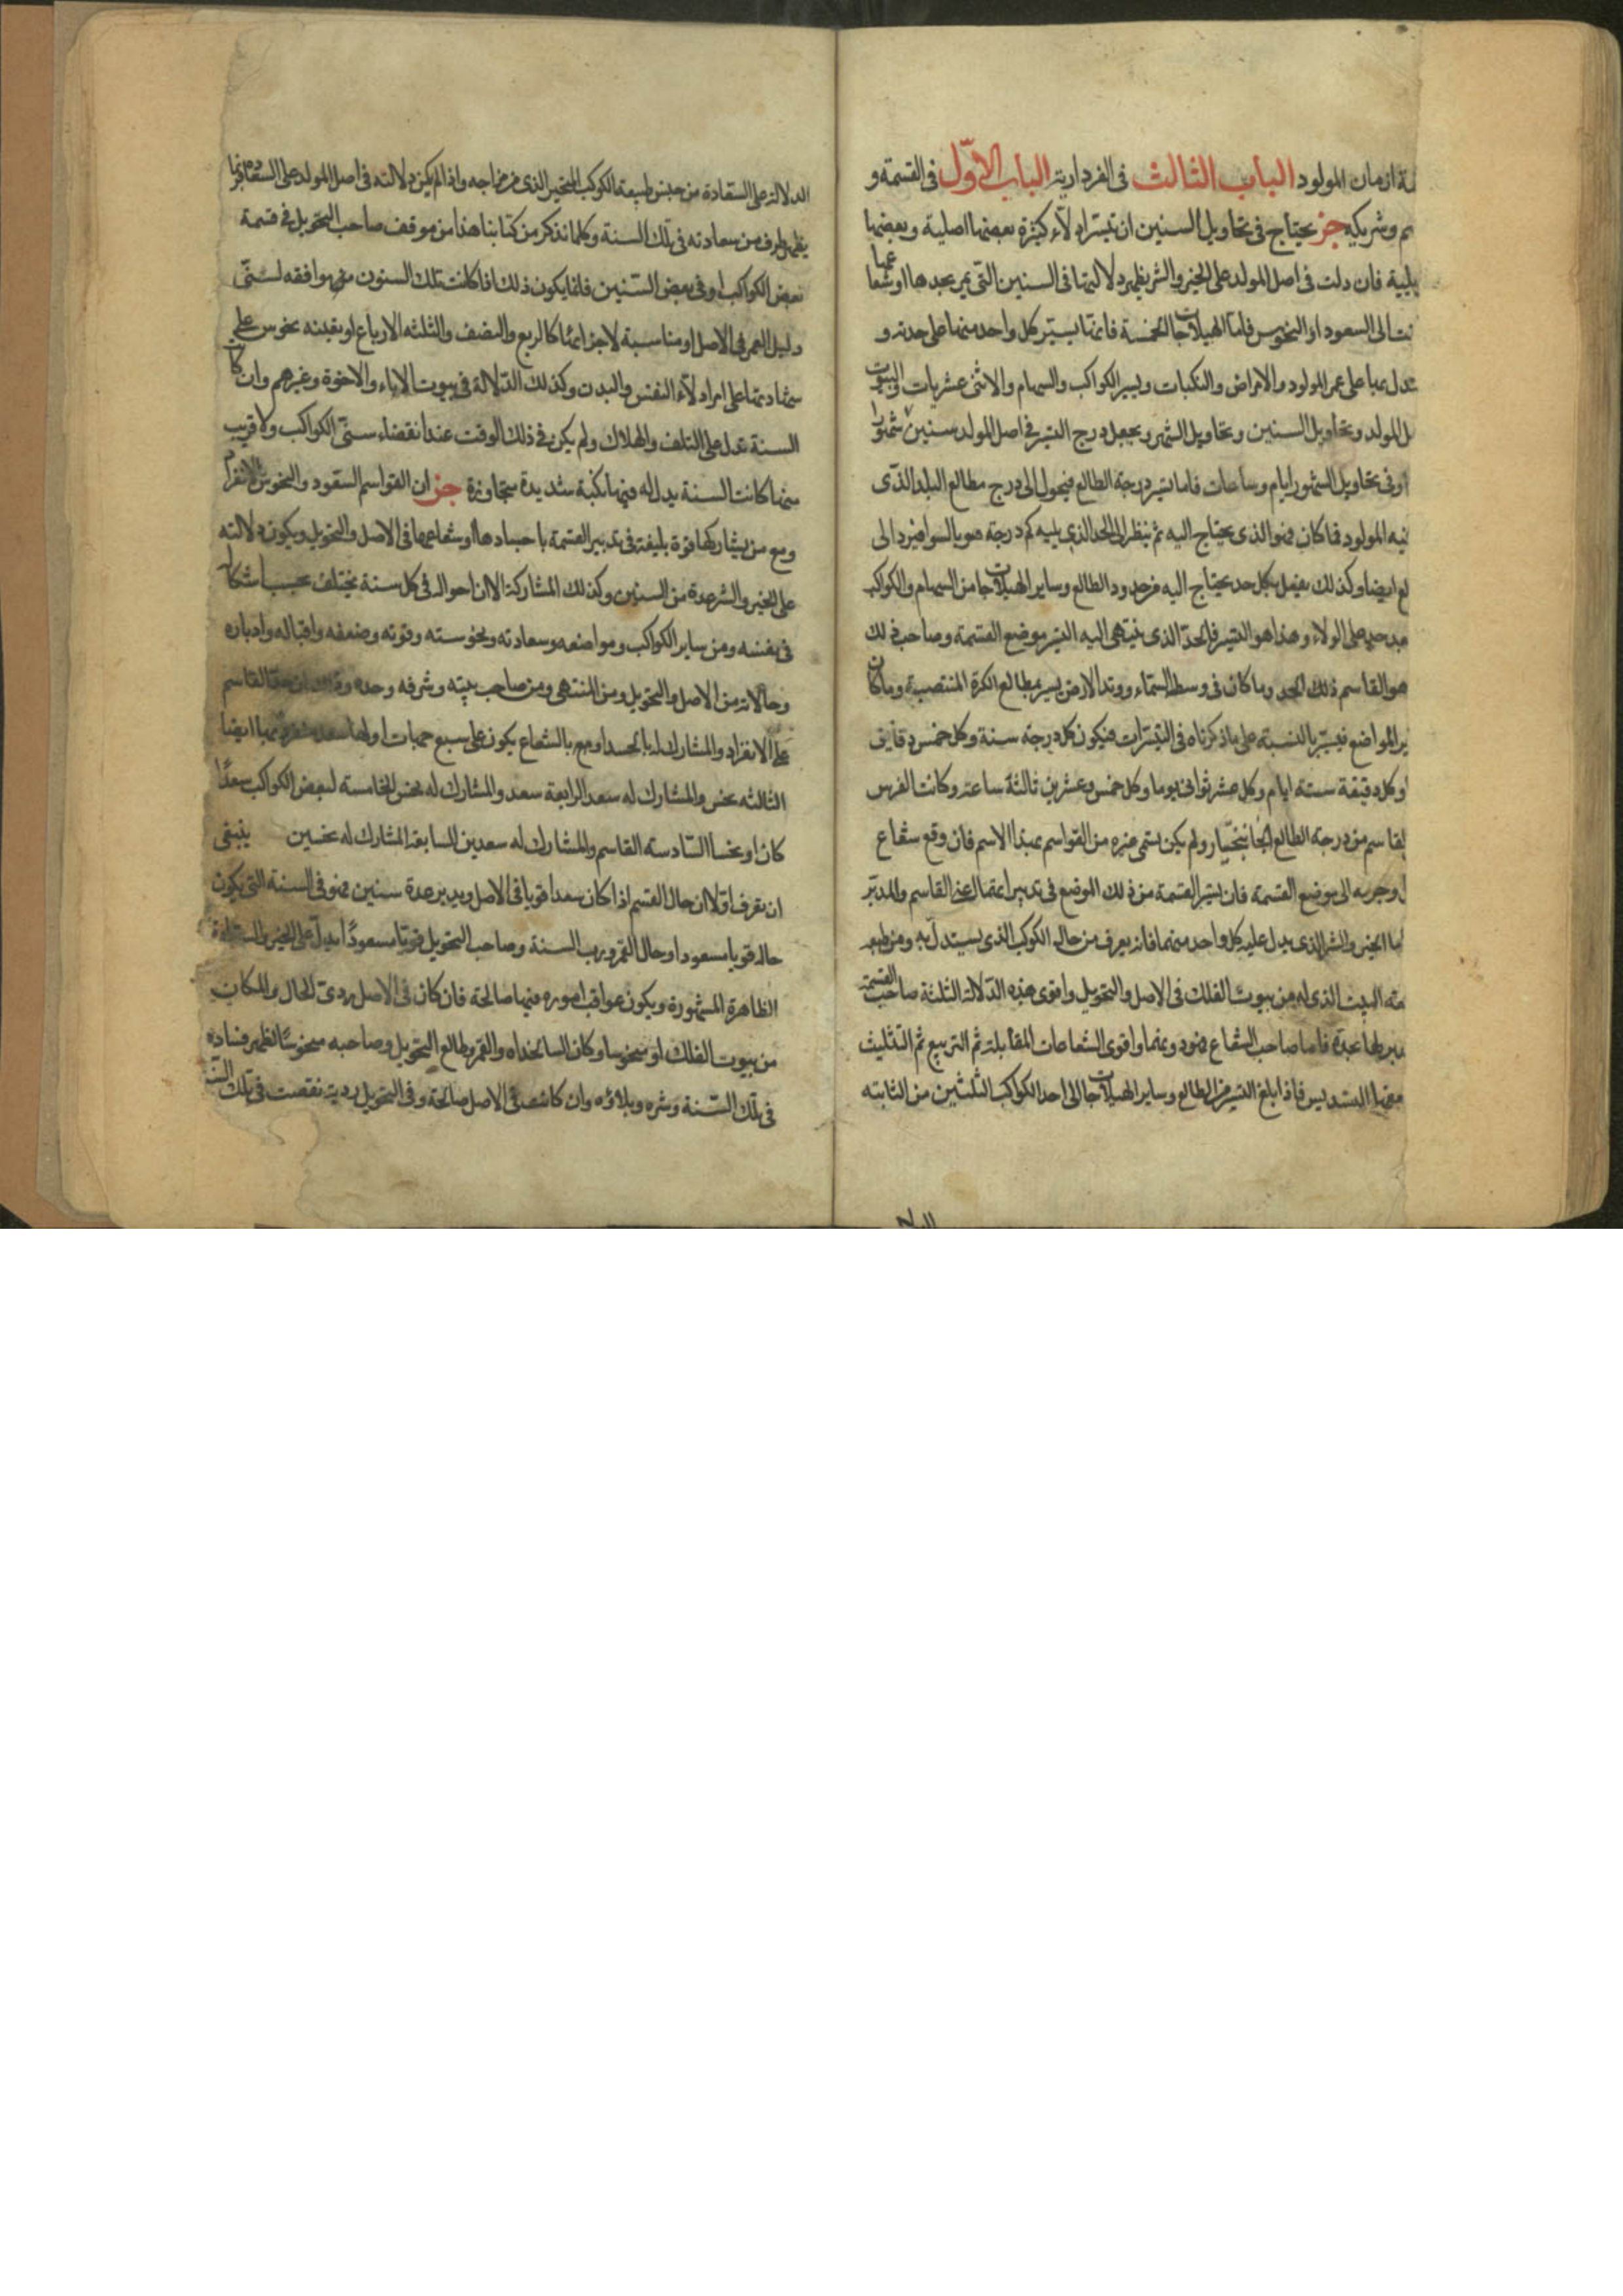 ـة ازمان المولود الباب الثالث فى الفردارية الباب الاوّل فى القسمة و
ـم وشريكه جز يحتاج فى تحاويل السنين ان تيسّر ادلّاء كثيرة بعضها اصلية وبعضها
ـيلية فان دلت فى اصل المولد على الخير والشر يظهر دلالتها فى السنين التى يمر بجدها او شعاعها
كانت الى السعود او النحوس فاما الهيلاجات الخمسة فانها يسيّر كل واحد منها على حدته و
تدل بها على عمر المولود والامراض والنكبات ويسير الكواكب والسهام والاثنى عشريات والبيوت
المولد وتحاويل السنين وتحاويل الشهور ويجعل درج التسير فى اصل المولد سنين وشهورا
وفى تحاويل الشهور ايام وساعات فاما تسير درجة الطالع فيحول الى درج مطالع البلد الذى
فيه المولود فما كان فهو الذى يحتاج اليه ثم ينظر الى الحد الذى يليه كم درجة هو بالسوا فيزد الى
ايضا وكذلك يفعل بكل حد يحتاج اليه من حدود الطالع وساير الهيلاجات من السهام والكواكب
على الولاء وهذا هو التسير فالحدّ الذى ينتهى اليه التسير موضع القسمة وصاحب ذلك
هو القاسم ذلك الحد وما كان فى وسط السماء ووتد الارض يسير بمطالع الكرة المنتصبة وما كان
المواضع فيسيّر بالنسبة على ما ذكرناه فى التسيرات فيكون كل درجة سنة وكل خمس دقايق
وكل دقيقة ستة ايام وكل عشر ثوانى يوما وكل خمس وعشرين ثالثة ساعة وكانت الفرس
القاسم من درجة الطالع الجانبختار ولم يكن يسمى غيره من القواسم بهذا الاسم فان وقع شعاع
وجرمه الى موضع القسمة فان يسير القسمة من ذلك الموضع فى تدبير القاسم والمدبّر
اما الخير والشر الذى يدل عليه كل واحد منهما فانه يعرف من حال الكوكب الذى يستدل به ومن طبعه
البيت الذى له من بيوت الفلك فى الاصل والتحويل واقوى هذه الدلالة الثلثة صاحب القسمة
فاما صاحب الشعاع فهو دونهما واقوى الشعاعات المقابلة ثم التربيع ثم التثليث
التسديس فاذا بلغ التسير من الطالع وساير الهيلاجات الى احد الكواكب الثلثين من الثابتة
الدلالة على السعادة من جنس طبيعة الكوكب المتحير الذى من مزاجه واذا لم يكن دلالته فى اصل المولد على السعادة فربما
يظهر طرف من سعادته فى تلك السنة وكلما نذكر من كتابنا هذا من موقف صاحب التحويل فى قسمة
بعض الكواكب او فى بعض السنين فانما يكون ذلك اذا كانت تلك السنون موافقه لسنى
دليل العمر فى الاصل او مناسبة لاجزائها كالربع والنصف والثلثه الارباع او يعينه نحوس على
شهادتها على ادلّاء النفس والبدن وكذلك الدلالة فى بيوت الاباء والاخوة وغيرهم وان كانت
السنة تدل على التلف والهلاك ولم يكن فى ذلك الوقت عند انقضاء سنىّ الكواكب ولا قريب
منها كانت السنة يدل له فيها نكبة شديدة متجاوزة جز ان القواسم السعود والنحوس بالانفراد
ومع من يشاركها قوة بليغة فى تدبير القسمة باجسادها او شعاعها فى الاصل والتحويل ويكون دلالته
على الخير والشر عدة من السنين وكذلك المشاركة الا ان احوال فى كل سنة يختلف بحسب
فى نفسه ومن ساير الكواكب ومواضعه وسعادته ونحوسته وقوته وضعفه واقباله وادباره
وحالاته من الاصل والتحويل ومن المنتهى ومن صاحب بيته وشرفه وحده القاسم
على الانفراد والمشارك له بالجسد او بالشعاع يكون على سبع جهات اولها
الثالثه نحس والمشارك له سعد الرابعة سعد والمشارك له نحس الخامسة لبعض الكواكب سعدًا
كان او نحسا السّادسة القاسم والمشارك له سعدين السابعة المشارك له نحسين ينبغى
ان يعرف اوّلا ان حال القسم اذا كان سعدا قويا فى الاصل ويدبر عدة سنين فهو فى السنة التى يكون
حاله قويا مسعودا وحال القمر ورب السنة وصاحب التحويل قويّا مسعودًا يدلّ على الخير والسعادة
الظاهرة المشهورة ويكون عواقب اموره فيها صالحة فان كان فى الاصل ردىّ الحال والمكان
من بيوت الفلك او منحوسا وكان السالخداه والقمر وطالع التحويل وصاحبه منحوسًا ظهر فساده
فى تلك السّنة وشره وبلاؤه وان كانت فى الاصل صالحة وفى التحويل ردية نقصت فى تلك السنة